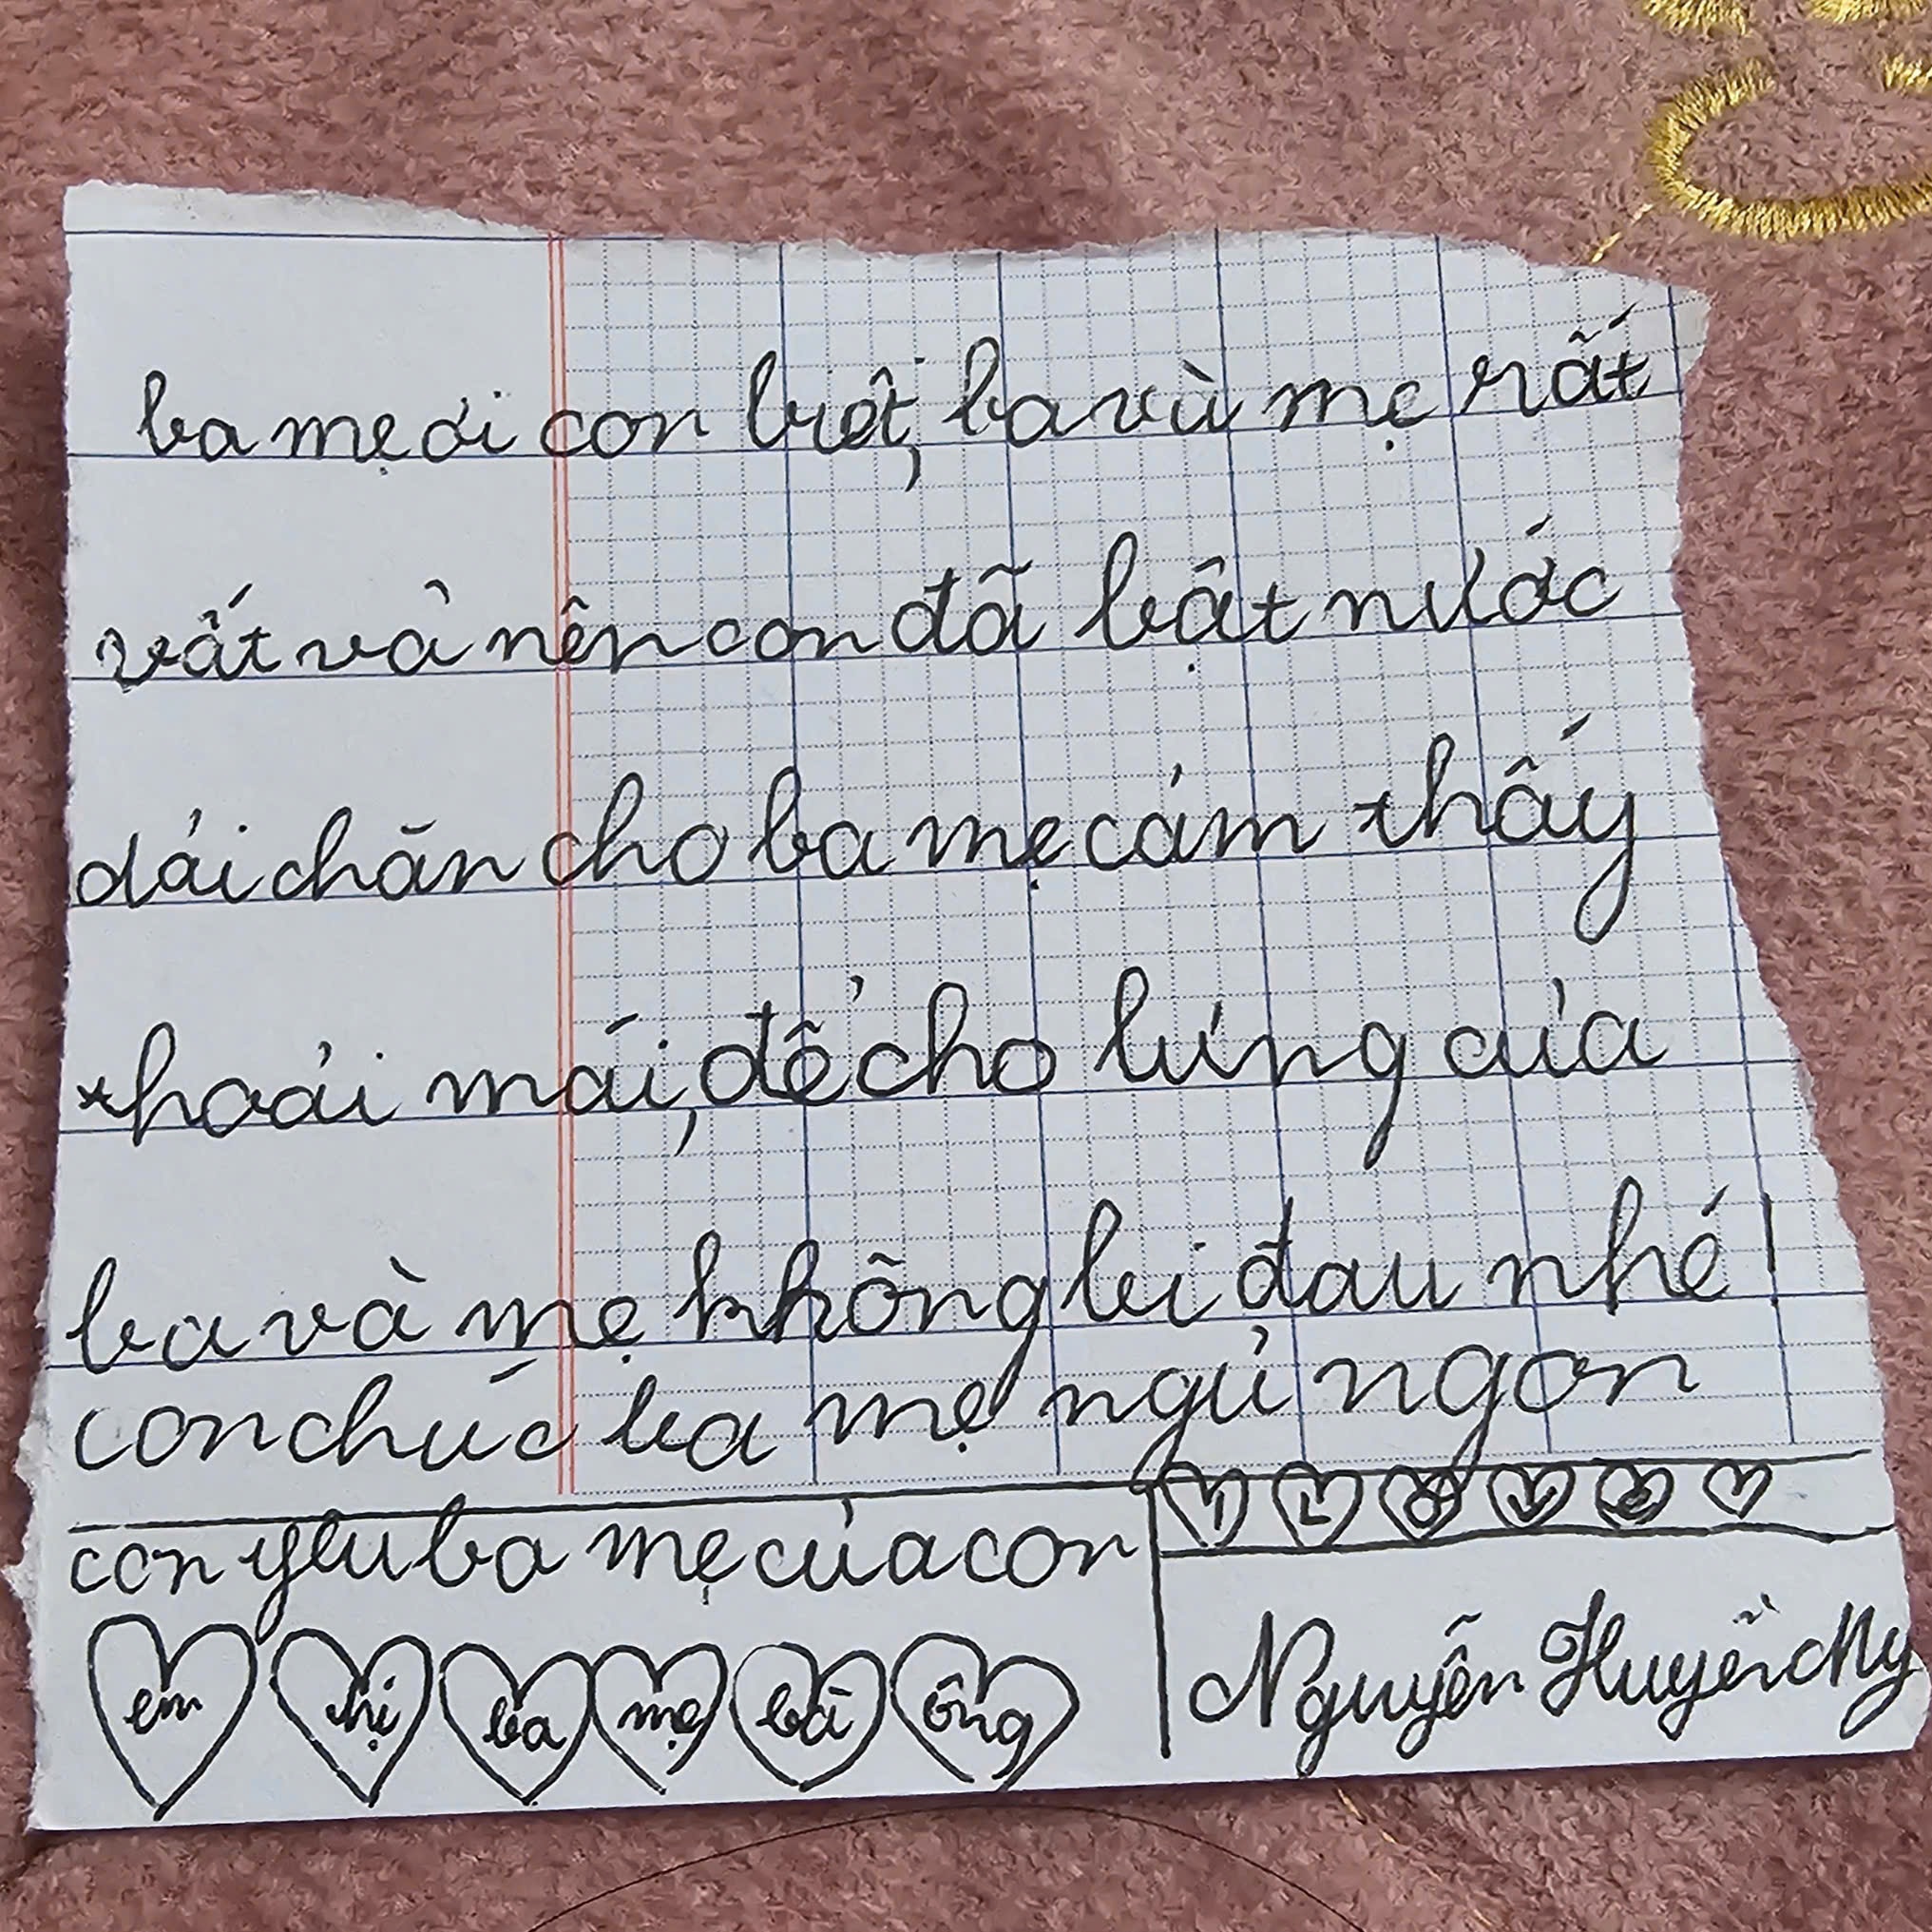 ba mẹ ơi con biết, ba và mẹ rất
vất vả nên con đã bật nước
dải chăn cho ba mẹ cảm thấy
thoải mái, để cho lưng của
ba và mẹ không bị đau nhé!
con chúc ba mẹ ngủ ngon
con yêu ba mẹ của con
em chị ba mẹ bà ông
Nguyễn Huyền My